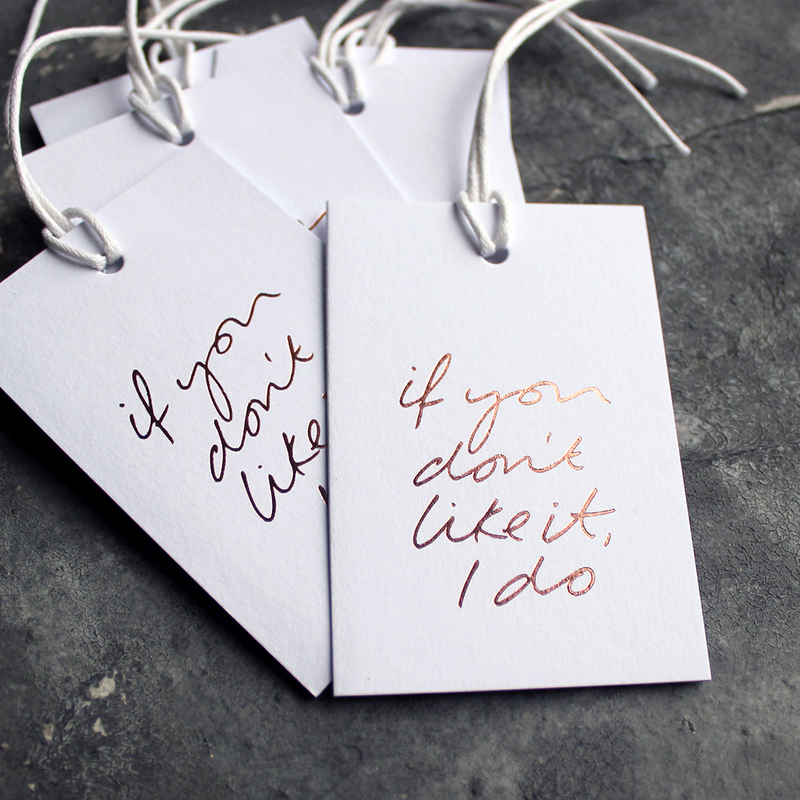 if you
don't
like
if you
don't
like it,
I do